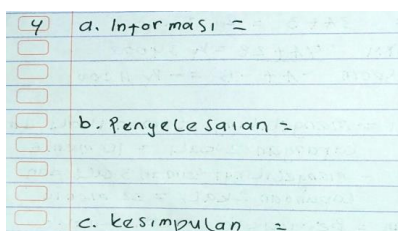 4 a. Informasi =
b. Penyelesaian =
c. kesimpulan =